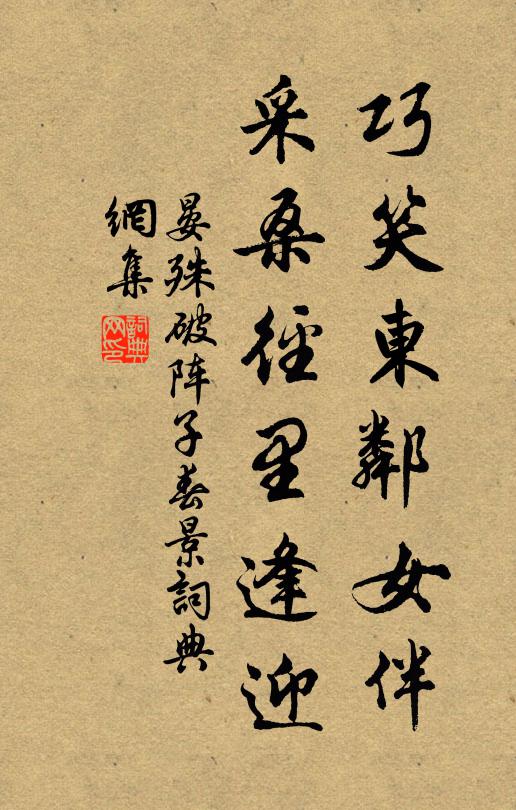 巧笑東鄰女伴
采桑徑里逢迎
晏殊破阵子春景詞典
網集
詞典
网印